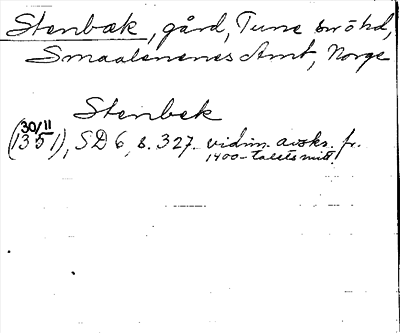 Stenbæk, gård, Tune
Smaalenenes Amt, Norge
Stenbek
30/11
(1351), SD 6, s. 327. vidim. avskr. fr.
1400-talets mitt.